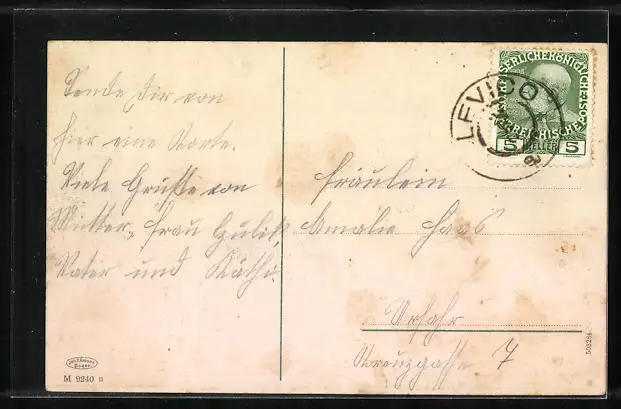 Sende dir von
hier eine Karte.
Viele Grüße von
Mutter, Frau
Vater und Käthi.
Fräulein
Amalie Haas
Urfahr
Kreuzgasse 7
LEVICO
KAISERLICHEKÖNIGLICHE
ÖSTERREICHISCHE POST
5 HELLER 5
M 9240 n